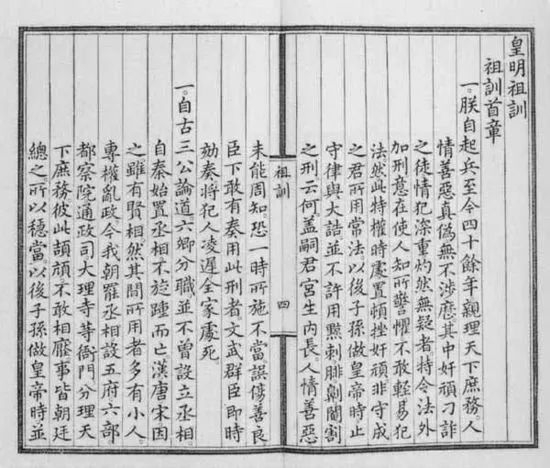 皇明祖訓
祖訓首章
一。朕自起兵至今四十餘年親理天下庶務。人
情善惡真偽無不涉歷其中奸頑刁詐
之徒情犯深重灼然無疑者特令法外
加刑意在使人知所警懼不敢輕易犯
法然此特權時處置頓挫奸頑非守成
之君所用常法以後子孫做皇帝時止
守律與大誥並不許用黥刺腓劓閹割
之刑云何。蓋嗣君宮生內長。人情善惡
祖訓
四
未能周知。恐一時所施不當誤傷善良
臣下敢有奏用此刑者文武群臣即時
劾奏將犯人凌遲全家處死
一。自古三公論道六卿分職並不曾設立丞相。
自秦始置丞相不旋踵而亡漢唐宋因
之雖有賢相。然其間所用者多有小人。
專權亂政今我朝罷丞相設五府六部。
都察院通政司大理寺等衙門分理天
下庶務彼此頡頏不敢相壓事皆朝廷
總之所以穩當。以後子孫做皇帝時並